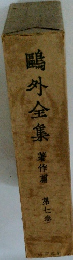 鷗外全集
著作篇
第七巻